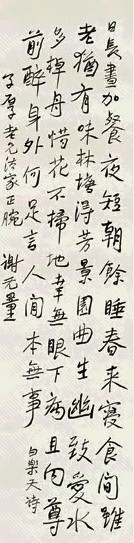 日長晝加餐夜短朝餘睡春来寢食間雖
老猶有味林塘得芳景園曲生幽致愛水
多棹舟惜花不掃地幸無眼下病且向尊
前醉身外何足言人間本無事 白樂天詩
子厚老兄法家正腕 謝无量